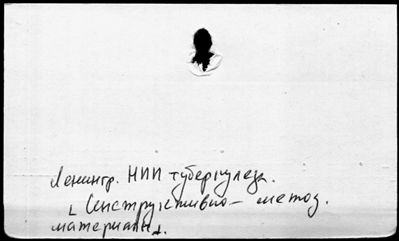 Ленингр. НИИ туберкулеза.
[Инструктивно-метод.
материалы.